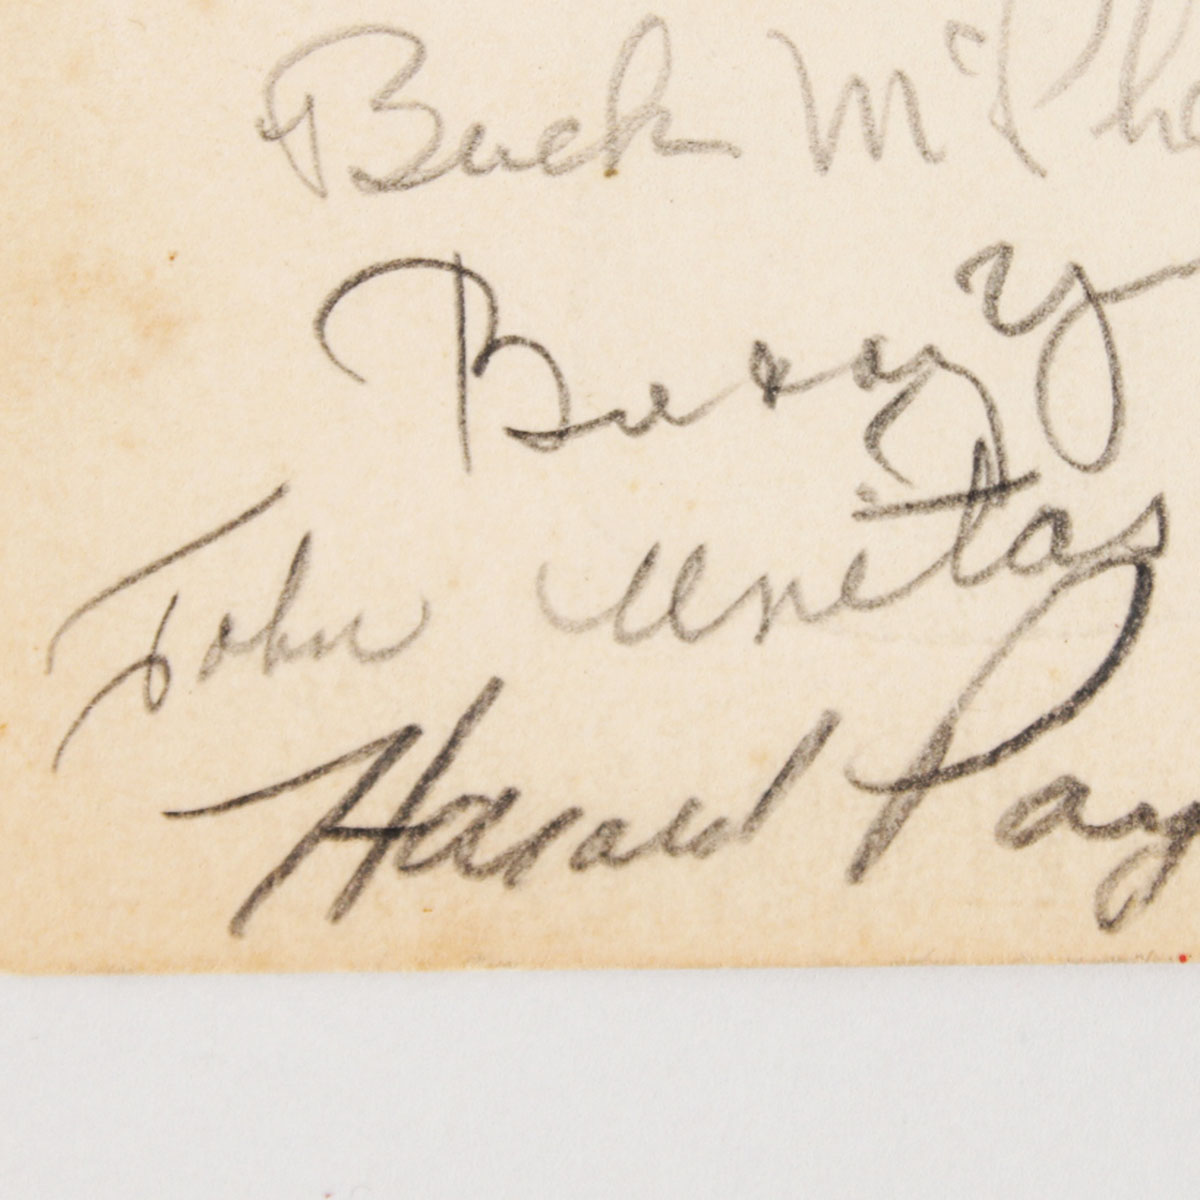 Buck McPhe
Buzzy
John Unitas
Harold Pay